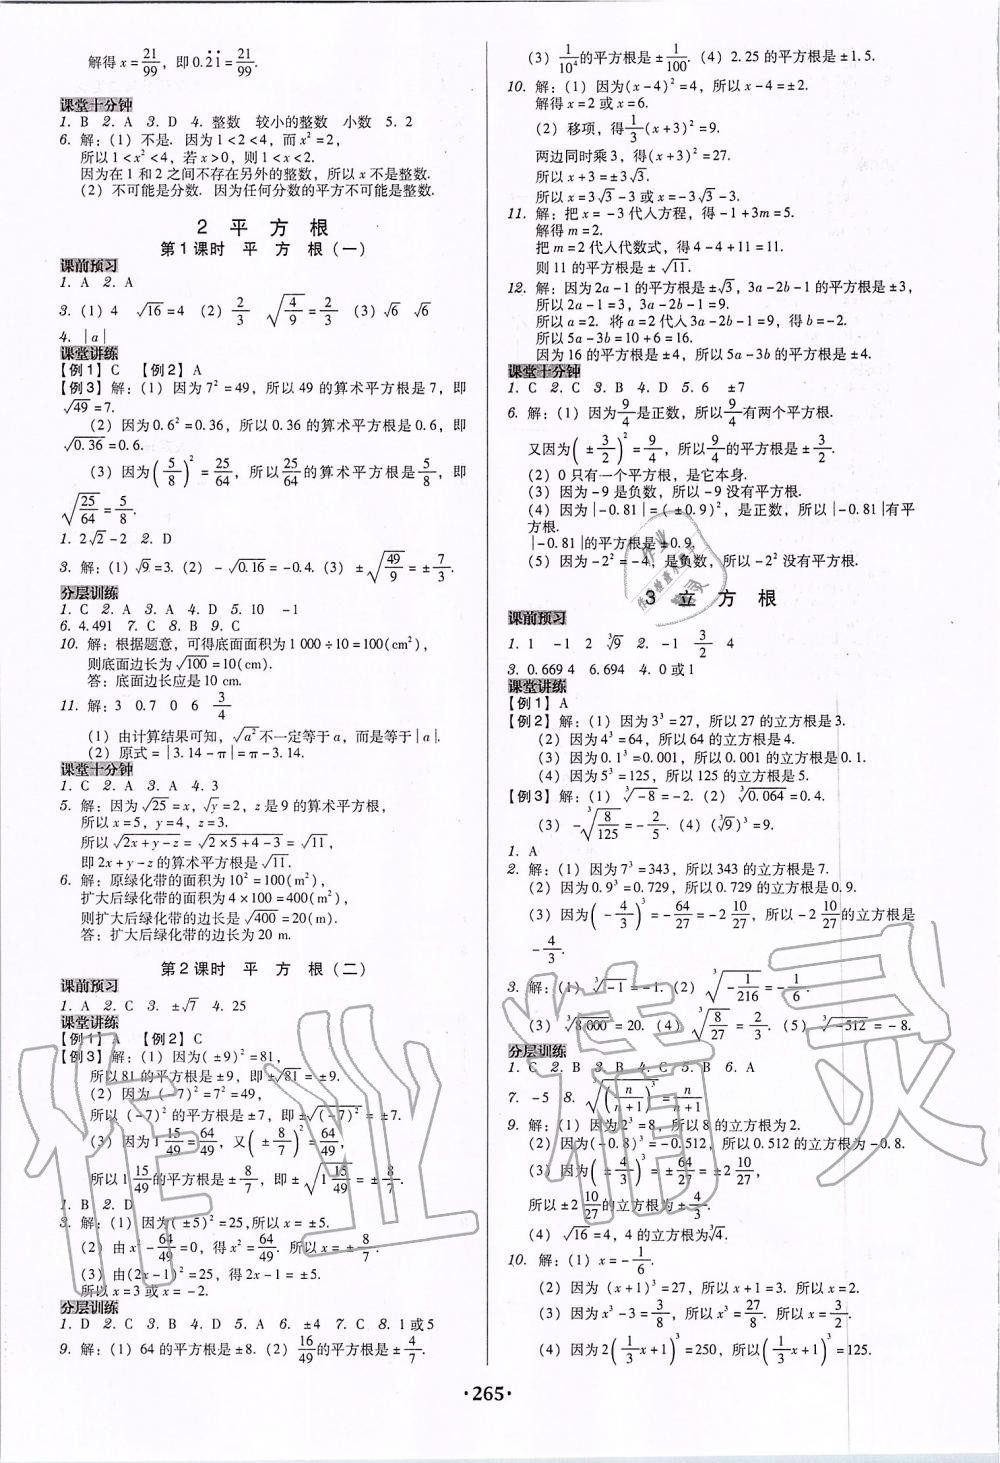 解得 x = 21/99, 即 0.2̇1̇ = 21/99.
课堂十分钟
1. B 2. A 3. D 4. 整数 较小的整数 小数 5. 2
6. 解:(1) 不是. 因为 1<2<4, 而 x²=2,
所以 1<x²<4, 若 x>0, 则 1<x<2.
因为在 1 和 2 之间不存在另外的整数, 所以 x 不是整数.
(2) 不可能是分数. 因为任何分数的平方不可能是整数.
2 平 方 根
第 1 课时 平 方 根(一)
课前预习
1. A 2. A
3. (1) 4 √16=4 (2) 2/3 √(4/9)=2/3 (3) √6 √6
4. |a|
课堂讲练
【例1】C 【例2】A
【例3】解:(1) 因为 7²=49, 所以 49 的算术平方根是 7, 即
√49=7.
(2) 因为 0.6²=0.36, 所以 0.36 的算术平方根是 0.6, 即
√0.36=0.6.
(3) 因为(5/8)²=25/64, 所以 25/64 的算术平方根是 5/8, 即
√(25/64)=5/8.
1. 2√2-2 2. D
3. 解:(1) √9=3. (2) -√0.16=-0.4. (3) ±√(49/9)=±7/3.
分层训练
1. C 2. A 3. A 4. D 5. 10 -1
6. 4.491 7. C 8. B 9. C
10. 解: 根据题意, 可得底面面积为 1 000÷10=100(cm²),
则底面边长为 √100=10(cm).
答: 底面边长应是 10 cm.
11. 解: 3 0.7 0 6 3/4
(1) 由计算结果可知, √a² 不一定等于 a, 而是等于|a|.
(2) 原式=|3.14-π|=π-3.14.
课堂十分钟
1. C 2. A 3. A 4. 3
5. 解: 因为 √25=x, √y=2, z 是 9 的算术平方根,
所以 x=5, y=4, z=3.
所以 √(2x+y-z)=√(2×5+4-3)=√11,
即 2x+y-z 的算术平方根是 √11.
6. 解: 原绿化带的面积为 10²=100(m²),
扩大后绿化带的面积为 4×100=400(m²),
则扩大后绿化带的边长是 √400=20(m).
答: 扩大后绿化带的边长为 20 m.
第 2 课时 平 方 根(二)
课前预习
1. A 2. C 3. ±√7 4. 25
课堂讲练
【例1】A 【例2】C
【例3】解:(1) 因为(±9)²=81,
所以 81 的平方根是 ±9, 即 ±√81=±9.
(2) 因为(-7)²=7²=49,
所以(-7)² 的平方根是 ±7, 即 ±√(-7)²=±7.
(3) 因为 1 15/49=64/49, 又(±8/7)²=64/49,
所以 1 15/49 的平方根是 ±8/7, 即 ±√(1 15/49)=±8/7.
1. B 2. D
3. 解:(1) 因为(±5)²=25, 所以 x=±5.
(2) 由 x²-64/49=0, 得 x²=64/49. 所以 x=±8/7.
(3) 由(2x-1)²=25, 得 2x-1=±5.
所以 x=3 或 x=-2.
分层训练
1. D 2. C 3. B 4. D 5. A 6. ±4 7. C 8. 1 或 5
9. 解:(1) 64 的平方根是 ±8. (2) 16/49 的平方根是 ±4/7.
(3) 1/10⁴ 的平方根是 ±1/100. (4) 2.25 的平方根是 ±1.5.
10. 解:(1) 因为(x-4)²=4, 所以 x-4=±2.
解得 x=2 或 x=6.
(2) 移项, 得 1/3(x+3)²=9.
两边同时乘 3, 得(x+3)²=27.
所以 x+3=±3√3.
所以 x=3√3-3 或 x=-3√3-3.
11. 解: 把 x=-3 代入方程, 得 -1+3m=5.
解得 m=2.
把 m=2 代入代数式, 得 4-4+11=11.
则 11 的平方根是 ±√11.
12. 解: 因为 2a-1 的平方根是 ±√3, 3a-2b-1 的平方根是 ±3,
所以 2a-1=3, 3a-2b-1=9.
所以 a=2. 将 a=2 代入 3a-2b-1=9, 得 b=-2.
所以 5a-3b=10+6=16.
因为 16 的平方根是 ±4, 所以 5a-3b 的平方根是 ±4.
课堂十分钟
1. C 2. C 3. B 4. D 5. 6 ±7
6. 解:(1) 因为 9/4 是正数, 所以 9/4 有两个平方根.
又因为(±3/2)²=9/4, 所以 9/4 的平方根是 ±3/2.
(2) 0 只有一个平方根, 是它本身.
(3) 因为 -9 是负数, 所以 -9 没有平方根.
(4) 因为|-0.81|=(±0.9)², 是正数, 所以|-0.81|有平
方根.
|-0.81|的平方根是 ±0.9.
(5) 因为 -2²=-4, 是负数, 所以 -2² 没有平方根.
3 立 方 根
课前预习
1. 1 -1 2 ³√9 2. -1 3/2 4
3. 0.669 4 6.694 4. 0 或 1
课堂讲练
【例1】A
【例2】解:(1) 因为 3³=27, 所以 27 的立方根是 3.
(2) 因为 4³=64, 所以 64 的立方根是 4.
(3) 因为 0.1³=0.001, 所以 0.001 的立方根是 0.1.
(4) 因为 5³=125, 所以 125 的立方根是 5.
【例3】解:(1) ³√-8=-2. (2) ³√0.064=0.4.
(3) -³√(8/125)=-2/5. (4) (³√9)³=9.
1. A
2. 解:(1) 因为 7³=343, 所以 343 的立方根是 7.
(2) 因为 0.9³=0.729, 所以 0.729 的立方根是 0.9.
(3) 因为(-4/3)³=-64/27=-2 10/27, 所以 -2 10/27 的立方根是
-4/3.
3. 解:(1) ³√-1=-1. (2) ³√(-1/216)=-1/6.
(3) ³√8 000=20. (4) ³√(8/27)=2/3. (5) ³√-512=-8.
分层训练
1. C 2. B 3. B 4. C 5. B 6. A
7. -5 8. √(n/(n+1))³=n/(n+1)
9. 解:(1) 因为 2³=8, 所以 8 的立方根为 2.
(2) 因为(-0.8)³=-0.512, 所以 -0.512 的立方根为 -0.8.
(3) 因为(±4/3)³=±64/27=±2 10/27,
所以 ±2 10/27 的立方根为 ±4/3.
(4) √16=4, 4 的立方根为 ³√4.
10. 解:(1) x=-1/6.
(2) 因为(x+1)³=27, 所以 x+1=3. 所以 x=2.
(3) 因为 x³-3=3/8, 所以 x³=27/8. 所以 x=3/2.
(4) 因为 2(1/3x+1)³=250, 所以(1/3x+1)³=125.
·265·
作业精灵